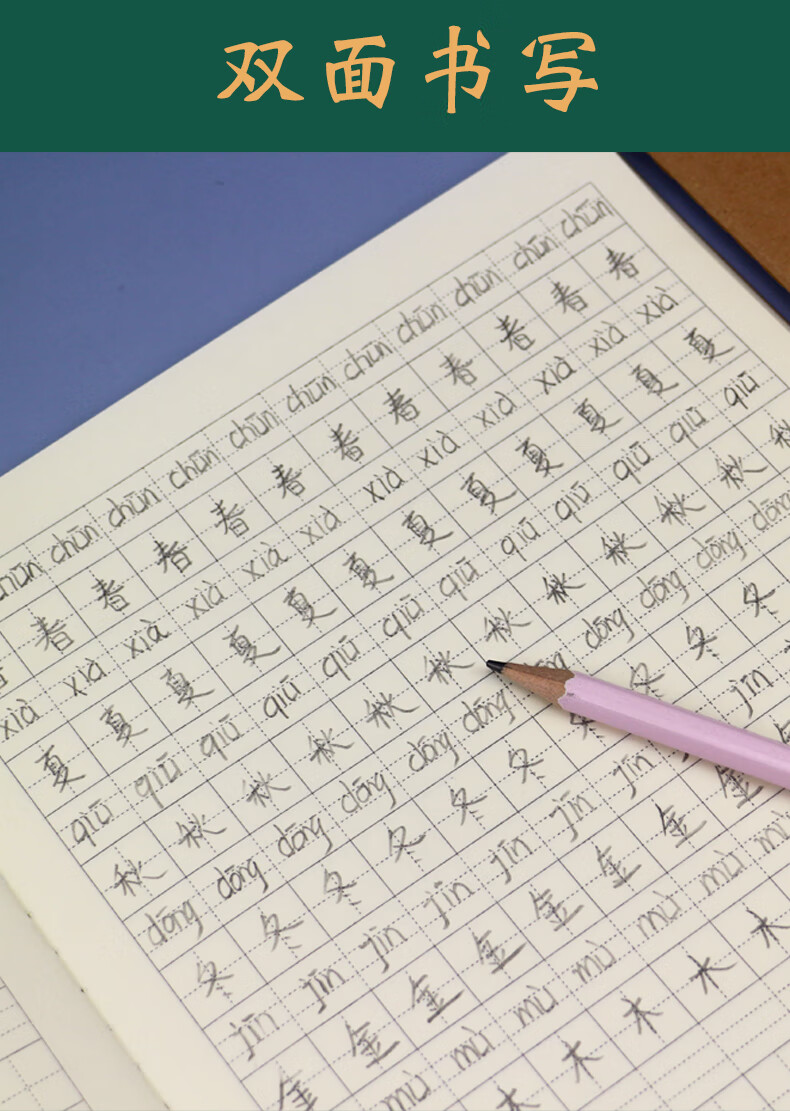 双面书写
chūn chūn chūn chūn chūn chūn chūn chūn chūn chūn
春 春 春 春 春 春 春 春 春 春 春
xià xià xià xià xià xià xià xià xià xià xià xià
夏 夏 夏 夏 夏 夏 夏 夏 夏 夏 夏 夏
qiū qiū qiū qiū qiū qiū qiū qiū qiū qiū qiū qiū
秋 秋 秋 秋 秋 秋 秋 秋 秋 秋 秋
dōng dōng dōng dōng dōng dōng dōng dōng dōng dōng
冬 冬 冬 冬 冬 冬 冬 冬 冬 冬
jīn jīn jīn jīn jīn jīn jīn jīn
金 金 金 金 金 金 金 金
mù mù mù mù mù mù mù
木 木 木 木 木